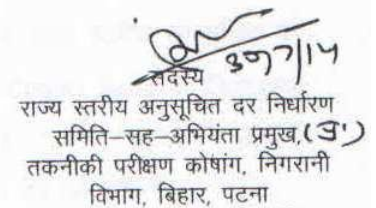 सदस्य
राज्य स्तरीय अनुसूचित दर निर्धारण
समिति–सह–अभियंता प्रमुख,
तकनीकी परीक्षण कोषांग, निगरानी
विभाग, बिहार, पटना